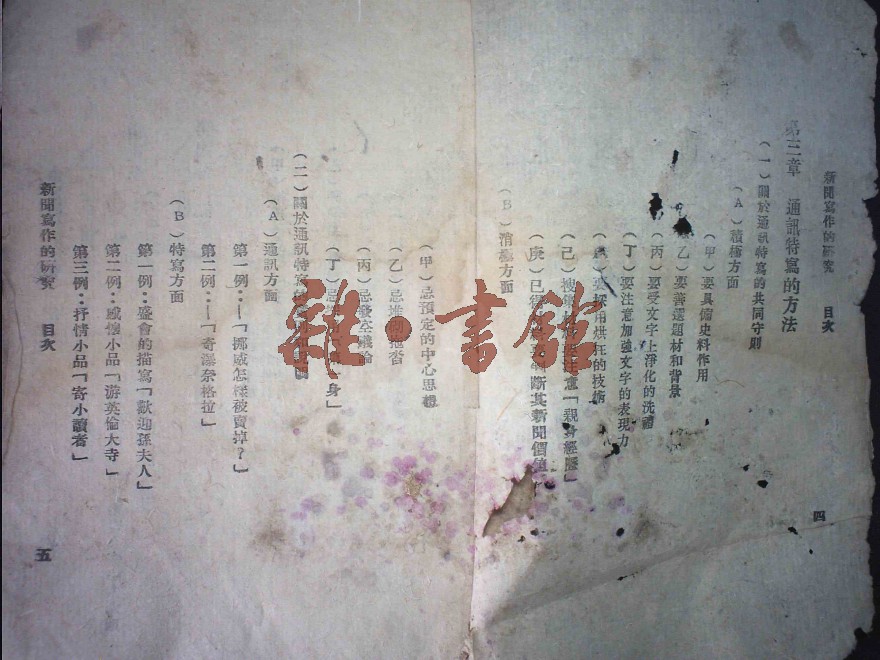 新聞寫作的研究 目次
四
第三章 通訊特寫的方法
(一)關於通訊特寫的共同守則
(A)積極方面
(甲)要具備史料作用
(乙)要善選題材和背景
(丙)要受文字上淨化的洗禮
(丁)要注意加強文字的表現力
要採用烘托的技術
(己)搜集 注意「親身經歷」
(庚)已得 斷其新聞價值
(B)消極方面
(甲)忌預定的中心思想
(乙)忌堆砌拖沓
(丙)忌發空議論
(丁)忌 身」
(二)關於通訊特寫
(A)通訊方面
第一例:—「挪威怎樣被賣掉?」
第二例:—「寄瀑奈格拉」
(B)特寫方面
第一例:盛會的描寫「歡迎孫夫人」
第二例:感懷小品「游英倫大寺」
第三例:抒情小品「寄小讀者」
新聞寫作的研究 目次
五
雜·書館